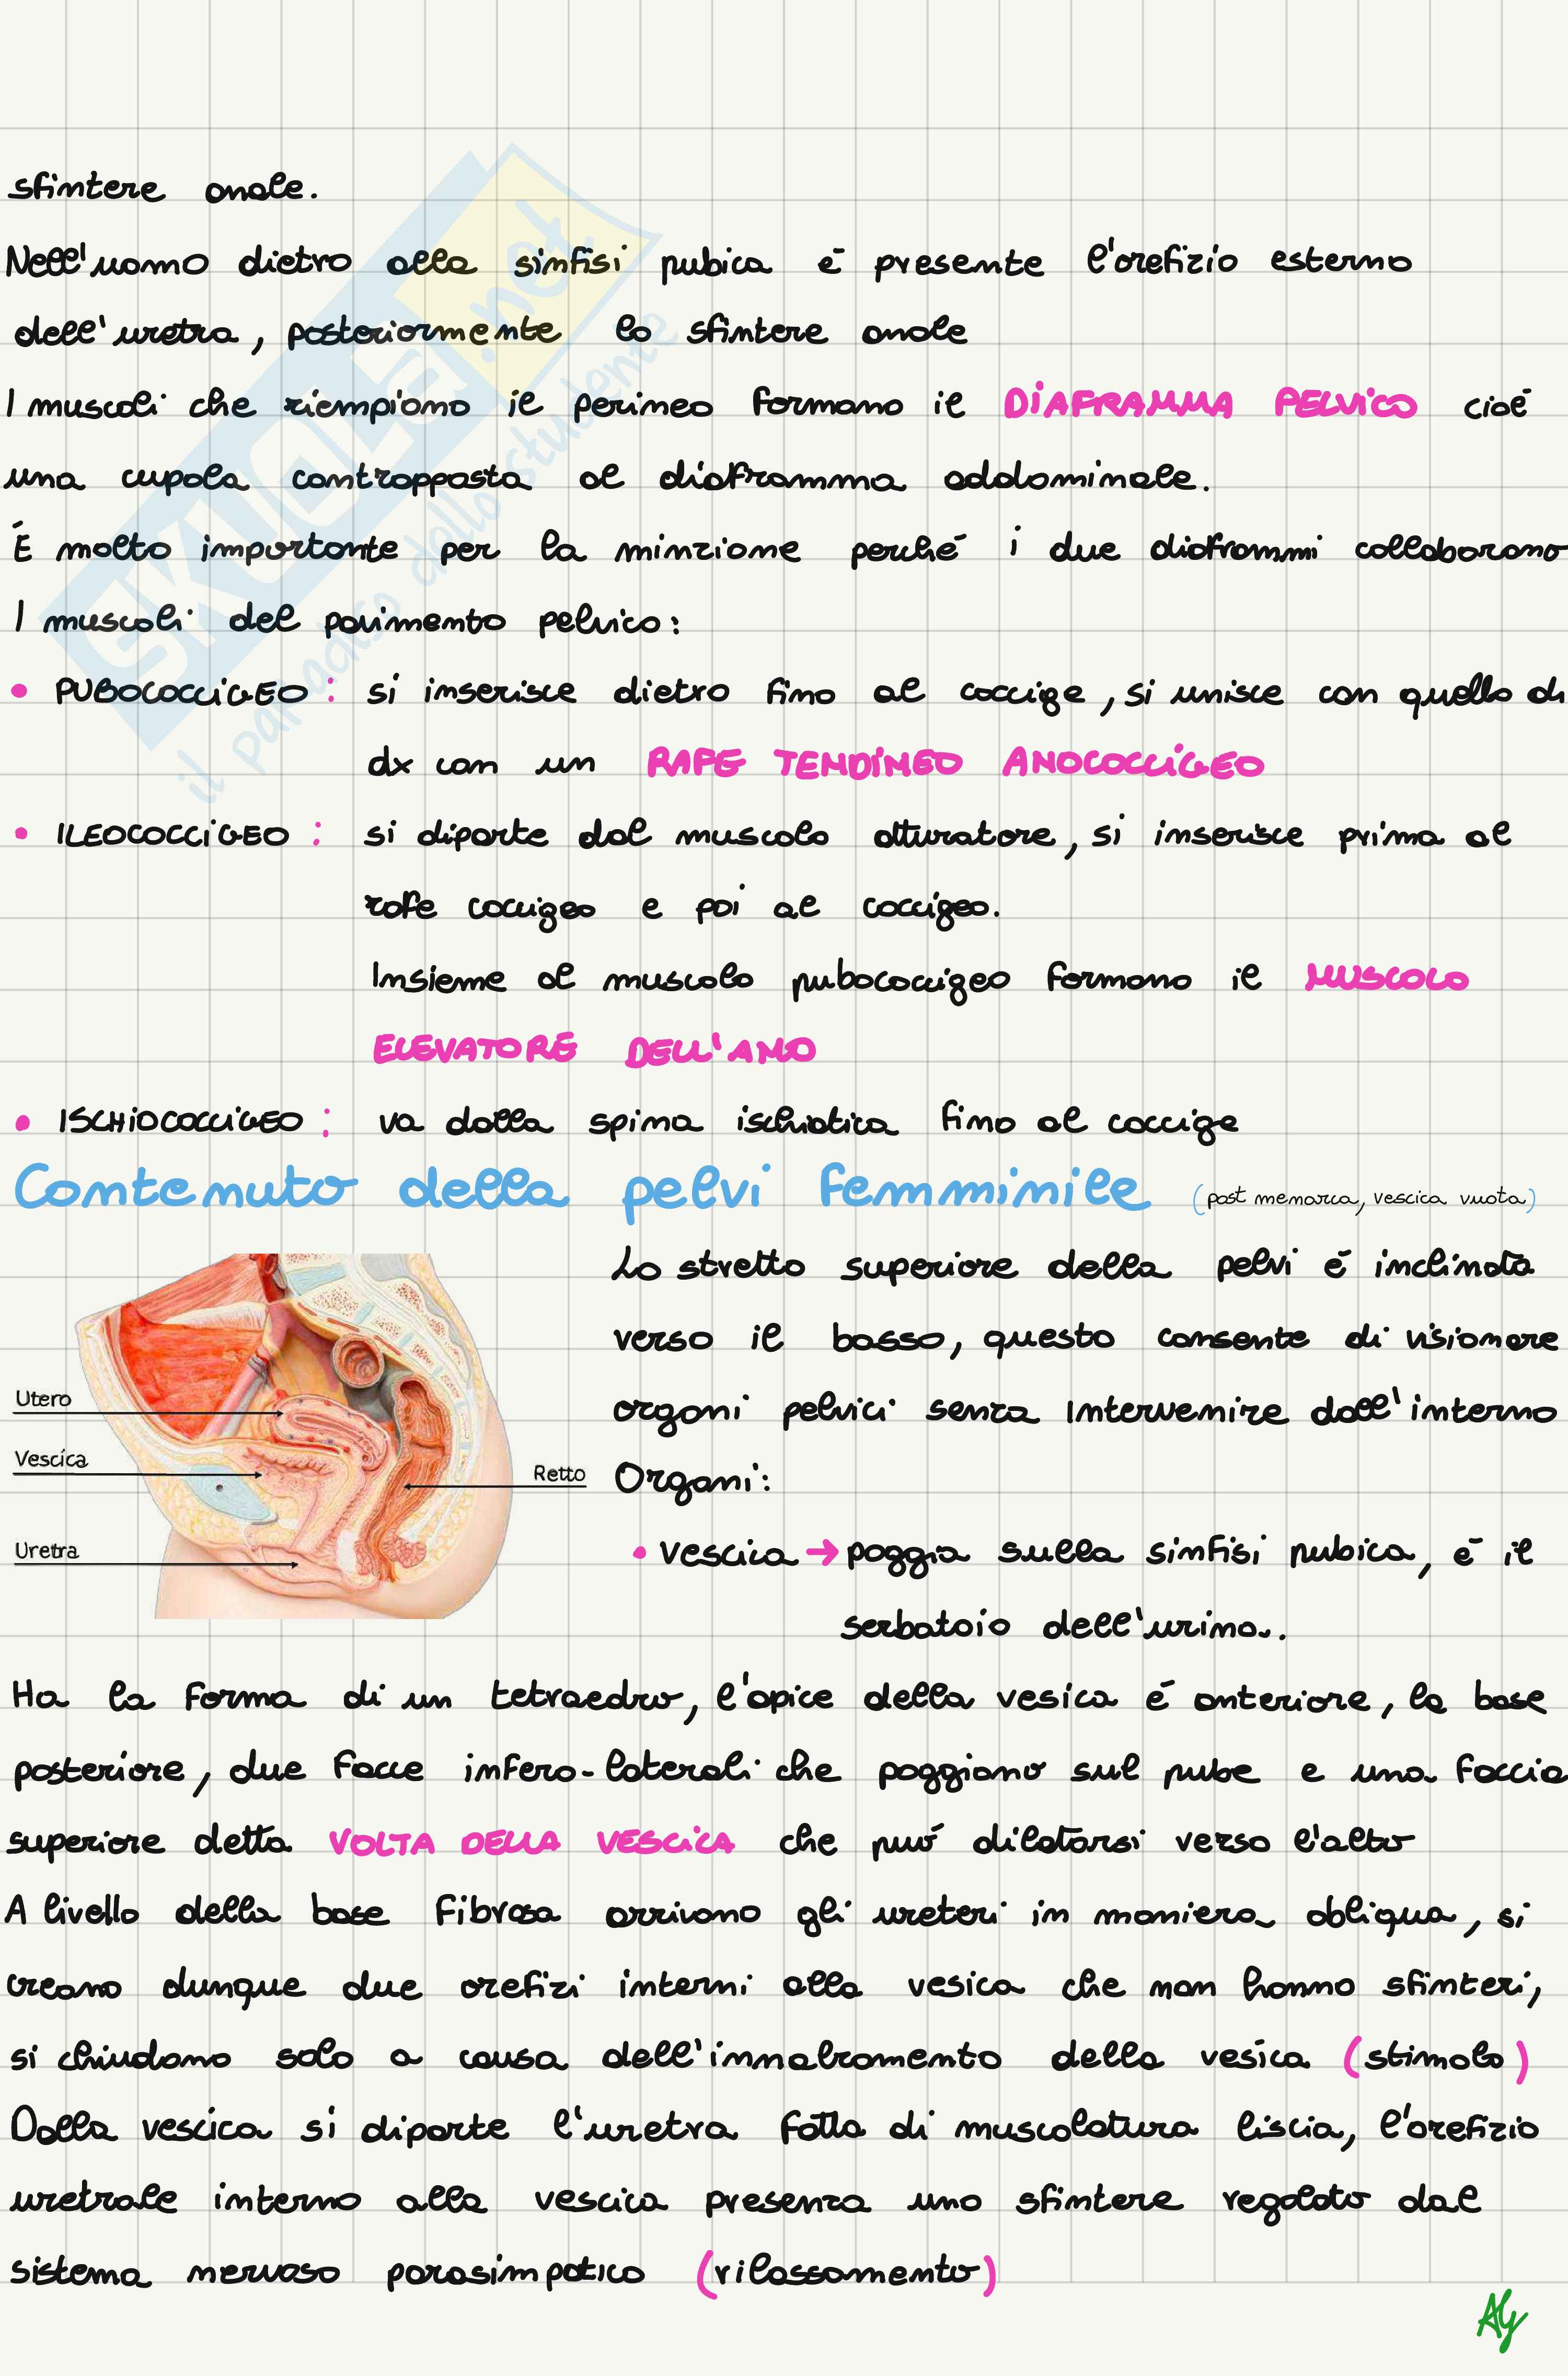 sfintere anale.
Nell'uomo dietro alla sinfisi pubica è presente l'orefizio esterno
dell'uretra, posteriormente lo sfintere anale
I muscoli che riempiono il perineo formano il DIAFRAMMA PELVICO cioè
una cupola contropposta al diaframma addominale.
È molto importante per la minzione perché i due diaframmi collaborano
I muscoli del pavimento pelvico:
• PUBOCOCCIGEO: si inserisce dietro fino al coccige, si unisce con quello di
dx con un RAFE TENDINEO ANOCOCCIGEO
• ILEOCOCCIGEO: si diparte dal muscolo otturatore, si inserisce prima al
rafe coccigeo e poi al coccigeo.
Insieme al muscolo pubococcigeo formano il MUSCOLO
ELEVATORE DELL'ANO
• ISCHIOCOCCIGEO: va dalla spina ischiatica fino al coccige
Contenuto della pelvi femminile (post menarca, vescica vuota)
Lo stretto superiore della pelvi è inclinata
verso il basso, questo consente di visionare
organi pelvici senza intervenire dall'interno
Organi:
• vescica → poggia sulla sinfisi pubica, è il
serbatoio dell'urina.
Utero
Vescica
Retto
Uretra
Ha la forma di un tetraedro, l'apice della vesica è anteriore, la base
posteriore, due facce infero-laterali che poggiano sul pube e una faccia
superiore detta VOLTA DELLA VESCICA che può dilatarsi verso l'alto
A livello della base fibrosa arrivano gli ureteri in maniera obliqua, si
creano dunque due orefizi interni alla vesica che non hanno sfinteri,
si chiudono solo a causa dell'innalzamento della vesica (stimolo)
Dalla vescica si diparte l'uretra fatta di muscolatura liscia, l'orefizio
uretrale interno alla vescica presenza uno sfintere regolato dal
sistema nervoso parasimpatico (rilassamento)
Aly
SKUOLA.net
il paradiso dello studente